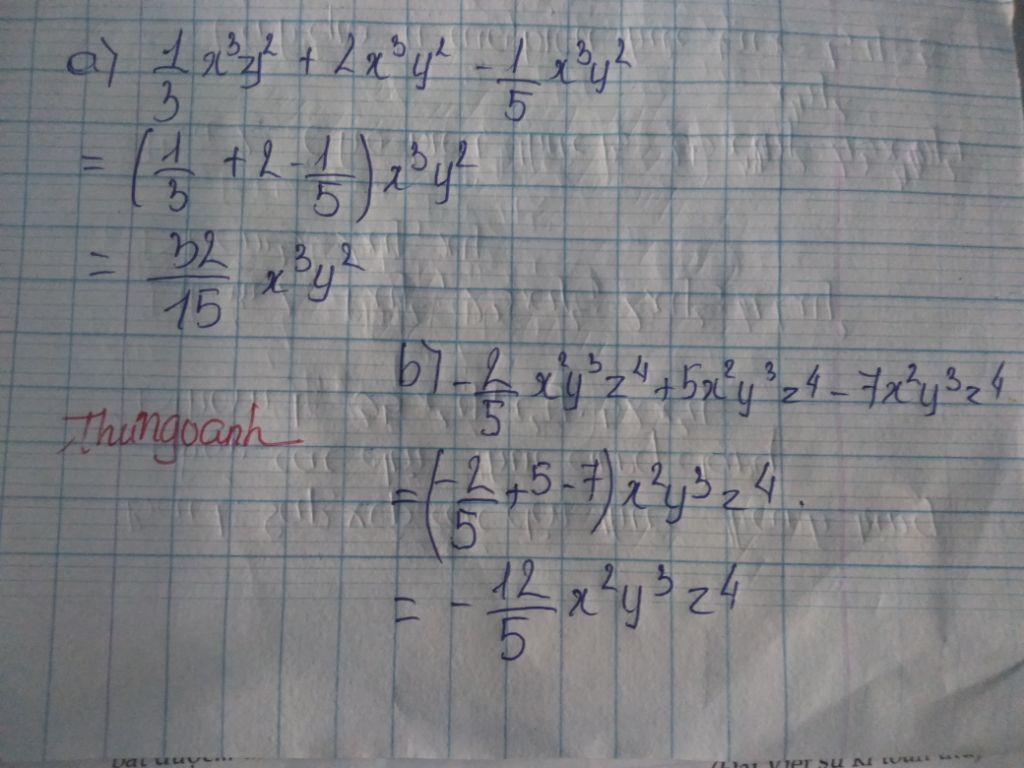 a) 1/3 x³y² + 2x³y² - 1/5 x³y²
= (1/3 + 2 - 1/5) x³y²
= 32/15 x³y²
b) - 2/5 x²y³z⁴ + 5x²y³z⁴ - 7x²y³z⁴
Thungoanh
= (-2/5 + 5 - 7) x²y³z⁴.
= - 12/5 x²y³z⁴